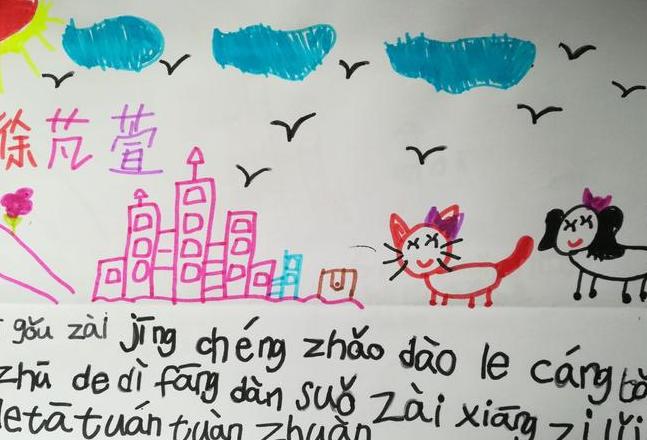 徐芃萱
gǒu zài jīng chéng zhǎo dào le cáng bǎ
zhū de dì fāng dàn suǒ zài xiāng zi lǐ
le tā tuán tuàn zhuàn